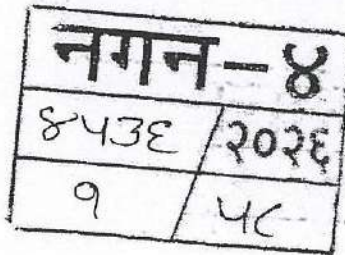 नगन-४
४५३६ / २०२६
१ / ५८